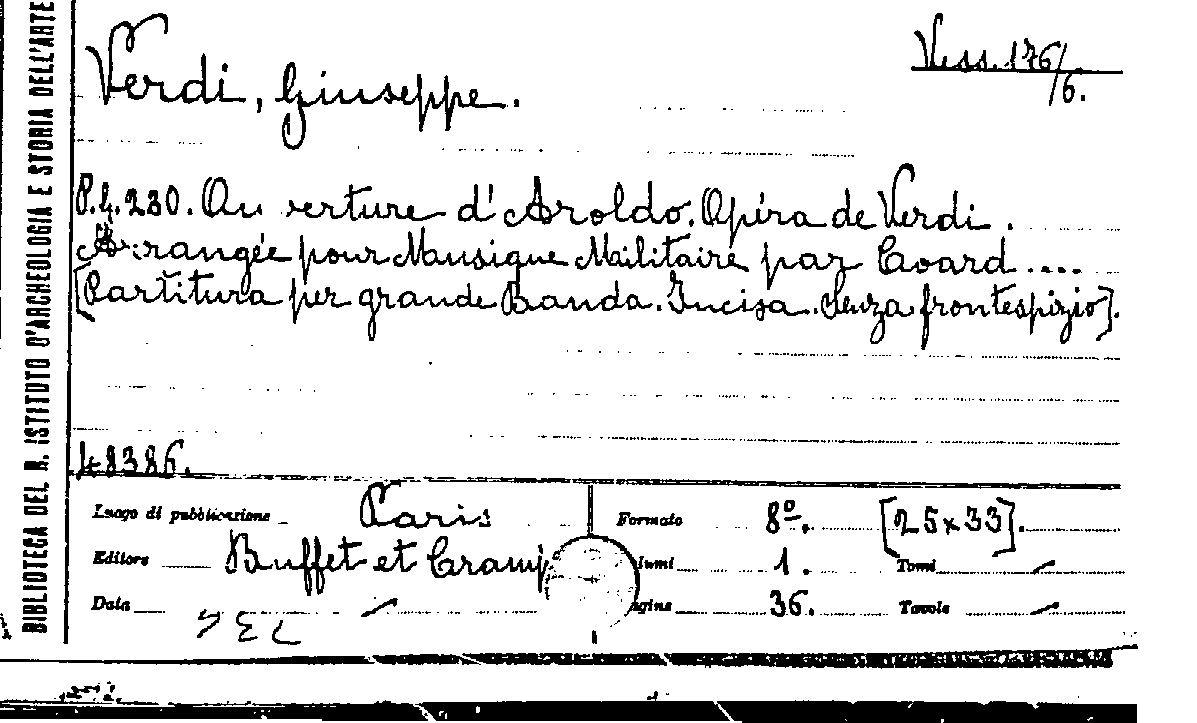 BIBLIOTECA DEL R. ISTITUTO D'ARCHEOLOGIA E STORIA DELL'ARTE
Verdi, Giuseppe.
Vess. 176/6.
P.G. 230. Ouverture d'Aroldo. Opéra de Verdi.
Arrangée pour Musique Militaire par Coard....
[Partitura per grande Banda. Incisa. Senza frontespizio].
48386.
Luogo di pubblicazione Paris
Formato 8º. [25x33].
Editore Buffet et Cramp
lumi 1. Tomi —
Data —
agine 36. Tavole —